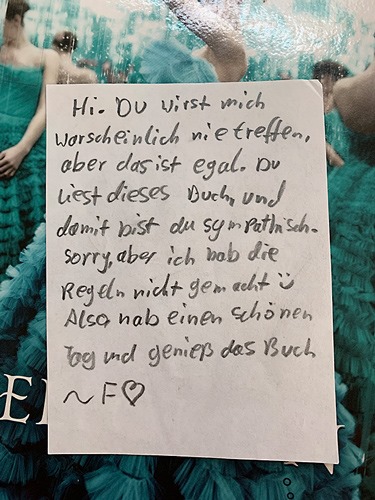 Hi. Du wirst mich
worscheinlich nie treffen,
aber das ist egal. Du
liest dieses Buch, und
damit bist du sympathisch.
sorry, aber ich hab die
Regeln nicht gemacht ü
Also, hab einen schönen
Tag und genieß das Buch
~ F♡